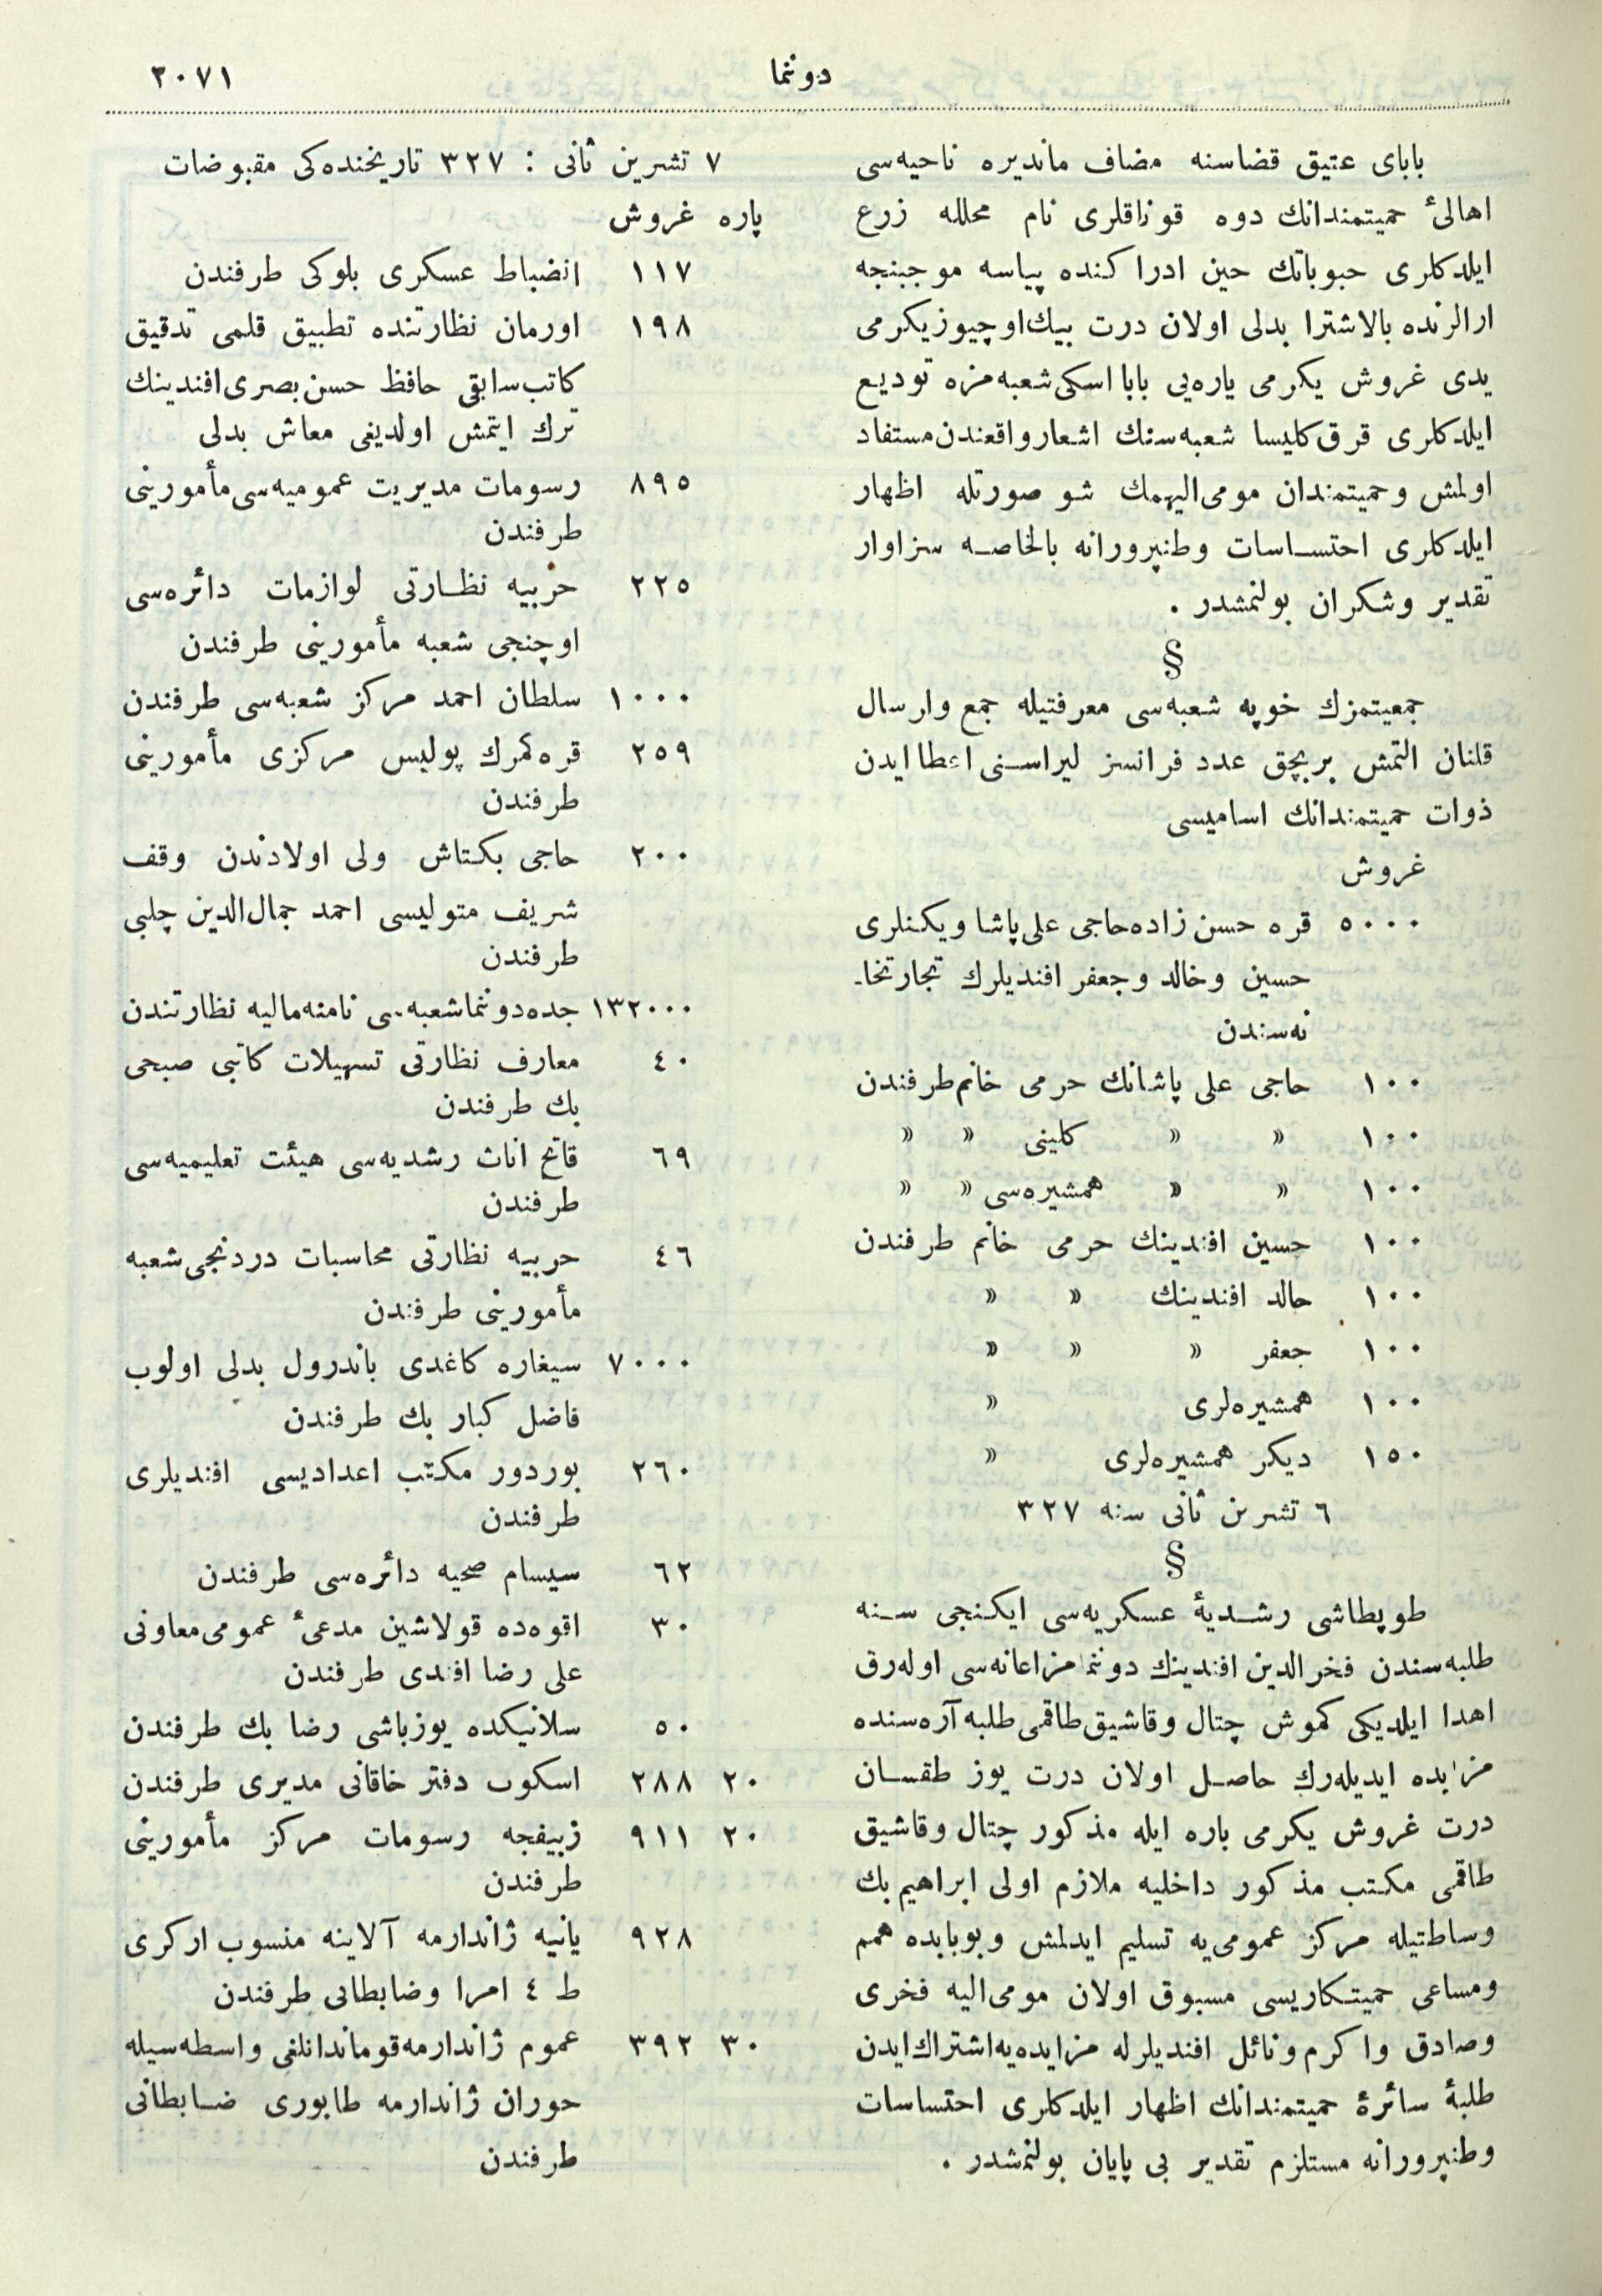 دوننما
٢٠٧١
بابای عتیق قضاسنه مضاف ماندیره ناحیه‌سی
اهالیٔ حمیتمندانك دوه قوناقلری نام محلله زرع
ایلدكلری حبوباتك حین ادراكنده پیاسه موجبنجه
ارالرنده بالاشترا بدلی اولان درت بیك اوچیوز یكرمی
یدی غروش یكرمی پاره‌یی بابا اسكی شعبه‌مزه تودیع
ایلدكلری قرق كلیسا شعبه‌سنك اشعار واقعندن مستفاد
اولمش وحمیتمندان مومی‌الیهمك شو صورتله اظهار
ایلدكلری احتساسات وطنپرورانه بالخاصه سزاوار
تقدیر وشكران بولنمشدر .
§
جمعیتمزك خوپه شعبه‌سی معرفتیله جمع وارسال
قلنان التمش بربچق عدد فرانسز لیراسنی اعطا ایدن
ذوات حمیتمندانك اسامیسی
غروش
٥٠٠٠ قره حسن زاده حاجی علی پاشا ویكنلری
حسین وخالد وجعفر افندیلرك تجارتخا-
نه‌سندن
١٠٠ حاجی علی پاشانك حرمی خانم طرفندن
١٠٠ » » كلینی » »
١٠٠ » » همشیره‌سی » »
١٠٠ حسین افندینك حرمی خانم طرفندن
١٠٠ خالد افندینك » »
١٠٠ جعفر » » »
١٠٠ همشیره‌لری »
١٥٠ دیكر همشیره‌لری »
٦ تشرین ثانی سنه ٣٢٧
§
طوپطاشی رشدیهٔ عسكریه‌سی ایكنجی سنه
طلبه‌سندن فخرالدین افندینك دوننمامز اعانه‌سی اوله‌رق
اهدا ایلدیكی كموش چتال وقاشیق طاقمی طلبه آره‌سنده
مزایده ایدیله‌رك حاصل اولان درت یوز طقسان
درت غروش یكرمی باره ایله مذكور چتال وقاشیق
طاقمی مكتب مذكور داخلیه ملازم اولی ابراهیم بك
وساطتیله مركز عمومی‌یه تسلیم ایدلمش وبوبابده همم
ومساعی حمیتكاریسی مسبوق اولان مومی‌الیه فخری
وصادق واكرم ونائل افندیلرله مزایده‌یه اشتراك ایدن
طلبهٔ سائرهٔ حمیتمندانك اظهار ایلدكلری احتساسات
وطنپرورانه مستلزم تقدیر بی پایان بولنمشدر .
٧ تشرین ثانی : ٣٢٧ تاریخنده‌كی مقبوضات
پاره غروش
١١٧ انضباط عسكری بلوكی طرفندن
١٩٨ اورمان نظارتنده تطبیق قلمی تدقیق
كاتب سابقی حافظ حسن بصری افندینك
ترك ایتمش اولدیغی معاش بدلی
٨٩٥ رسومات مدیریت عمومیه‌سی مأمورینی
طرفندن
٢٢٥ حربیه نظارتی لوازمات دائره‌سی
اوچنجی شعبه مأمورینی طرفندن
١٠٠٠ سلطان احمد مركز شعبه‌سی طرفندن
٢٥٩ قره كمرك پولیس مركزی مأمورینی
طرفندن
٢٠٠ حاجی بكتاش ولی اولادندن وقف
شریف متولیسی احمد جمال‌الدین چلبی
طرفندن
١٣٢٠٠٠ جده دوننما شعبه‌سی نامنه مالیه نظارتندن
٤٠ معارف نظارتی تسهیلات كاتبی صبحی
بك طرفندن
٦٩ فاتح اناث رشدیه‌سی هیئت تعلیمیه‌سی
طرفندن
٤٦ حربیه نظارتی محاسبات دردنجی شعبه
مأمورینی طرفندن
٧٠٠٠ سیغاره كاغدی باندرول بدلی اولوب
فاضل كبار بك طرفندن
٢٦٠ بوردور مكتب اعدادیسی افندیلری
طرفندن
٦٢ سیسام صحیه دائره‌سی طرفندن
٣٠ اقوه‌ده قولاشین مدعیٔ عمومی معاونی
علی رضا افندی طرفندن
٥٠ سلانیكده یوزباشی رضا بك طرفندن
٢٠ ٢٨٨ اسكوب دفتر خاقانی مدیری طرفندن
٢٠ ٩١١ زبیفجه رسومات مركز مأمورینی
طرفندن
٩٢٨ یانیه ژاندارمه آلاینه منسوب اركری
ط ٤ امرا وضابطانی طرفندن
٣٠ ٣٩٢ عموم ژاندارمه قوماندانلغی واسطه‌سیله
حوران ژاندارمه طابوری ضابطانی
طرفندن